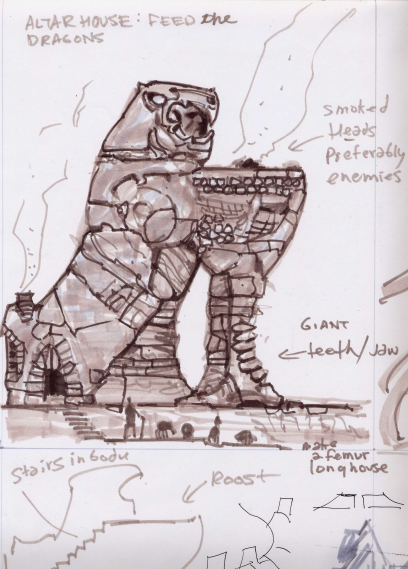 ALTAR HOUSE: FEED the
DRAGONS
smoked
Heads
Preferably
enemies
GIANT
teeth/jaw
make
a femur
longhouse
Stairs in body
Roost